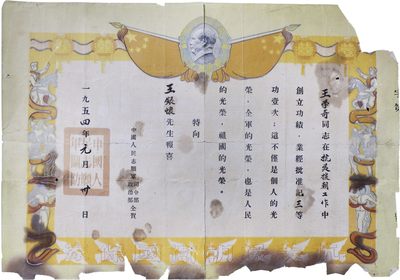 王学奇同志在抗美援朝工作中
创立功绩，業經批准記三等
功壹次；這不僅是個人的光
榮，全軍的光榮，也是人民
的光榮，祖國的光榮。
特向
王銀娘先生報喜
中國人民志願軍司令部政治部仝賀
一九五四年元月廿日